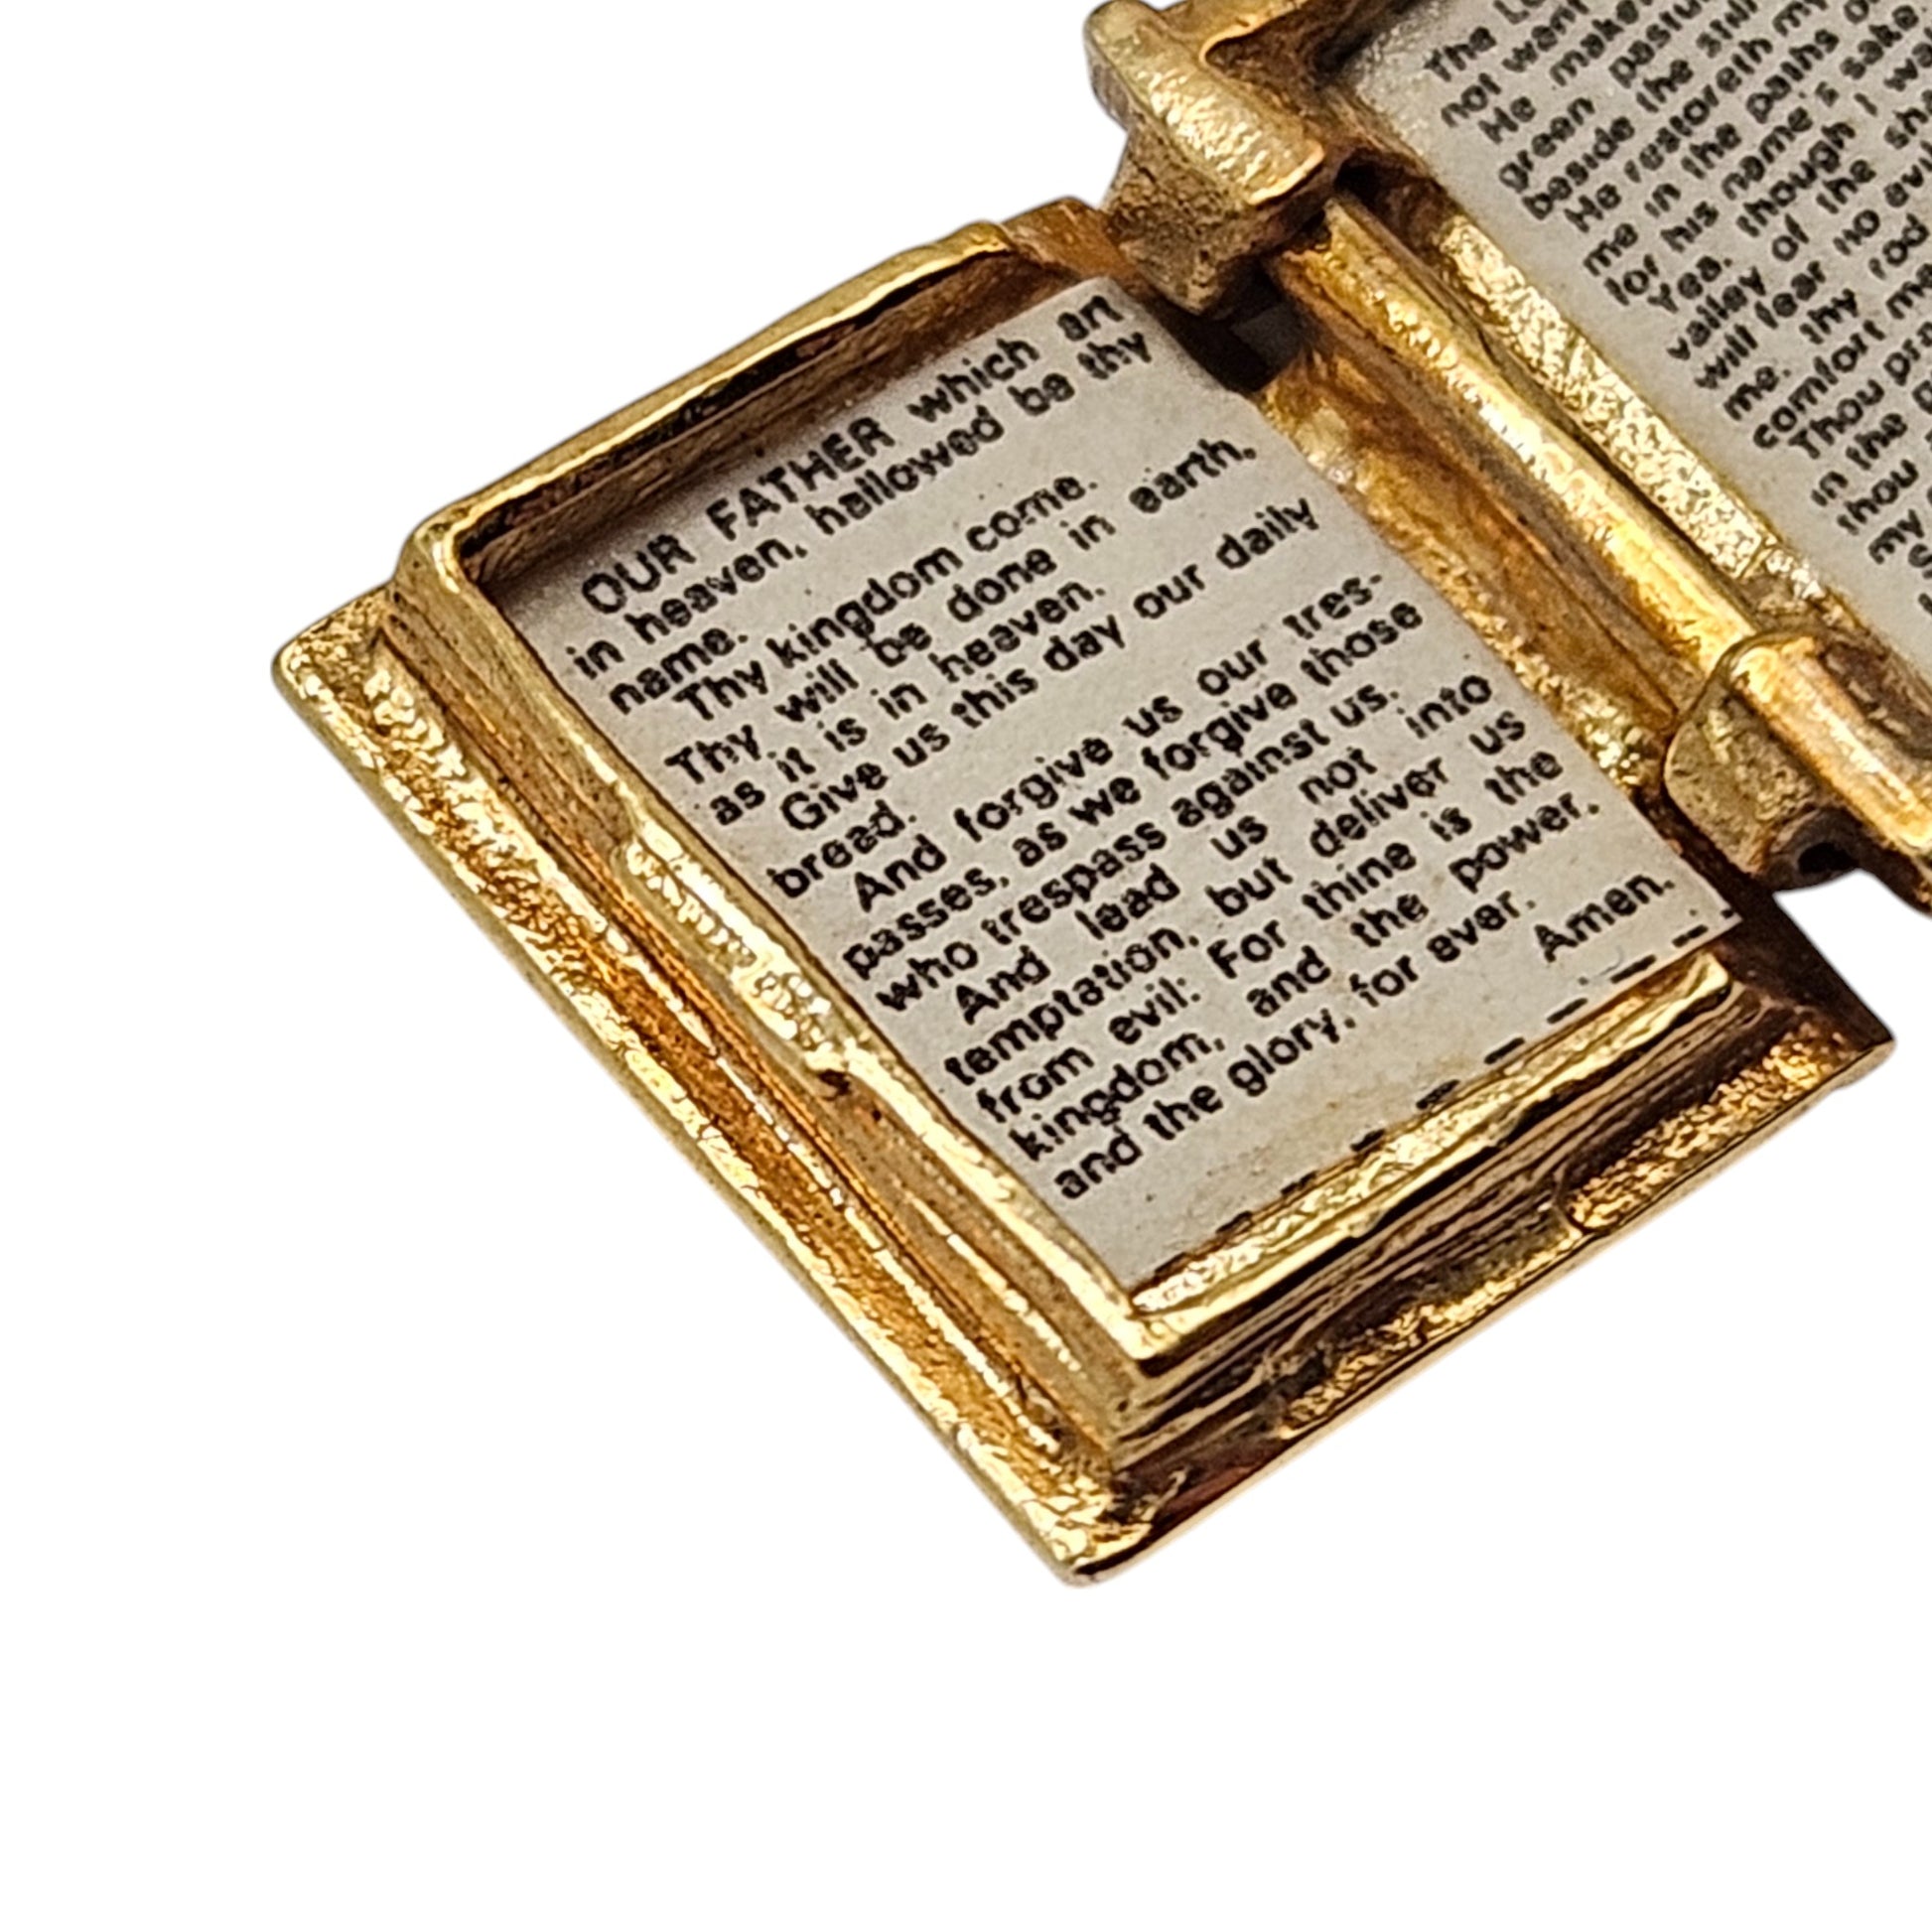 OUR FATHER which art
in heaven, hallowed be thy
name.
Thy kingdom come.
Thy will be done in earth,
as it is in heaven.
Give us this day our daily
bread.
And forgive us our tres-
passes, as we forgive those
who trespass against us.
And lead us not into
temptation, but deliver us
from evil: For thine is the
kingdom, and the power,
and the glory, for ever.
Amen.
The
not want
He make
green pastu
beside the still
He restoreth my
me in the paths
for his name's sake
Yea, though I
valley of the
will fear no evil
me. thy rod
comfort me
Thou pre
in the
thou